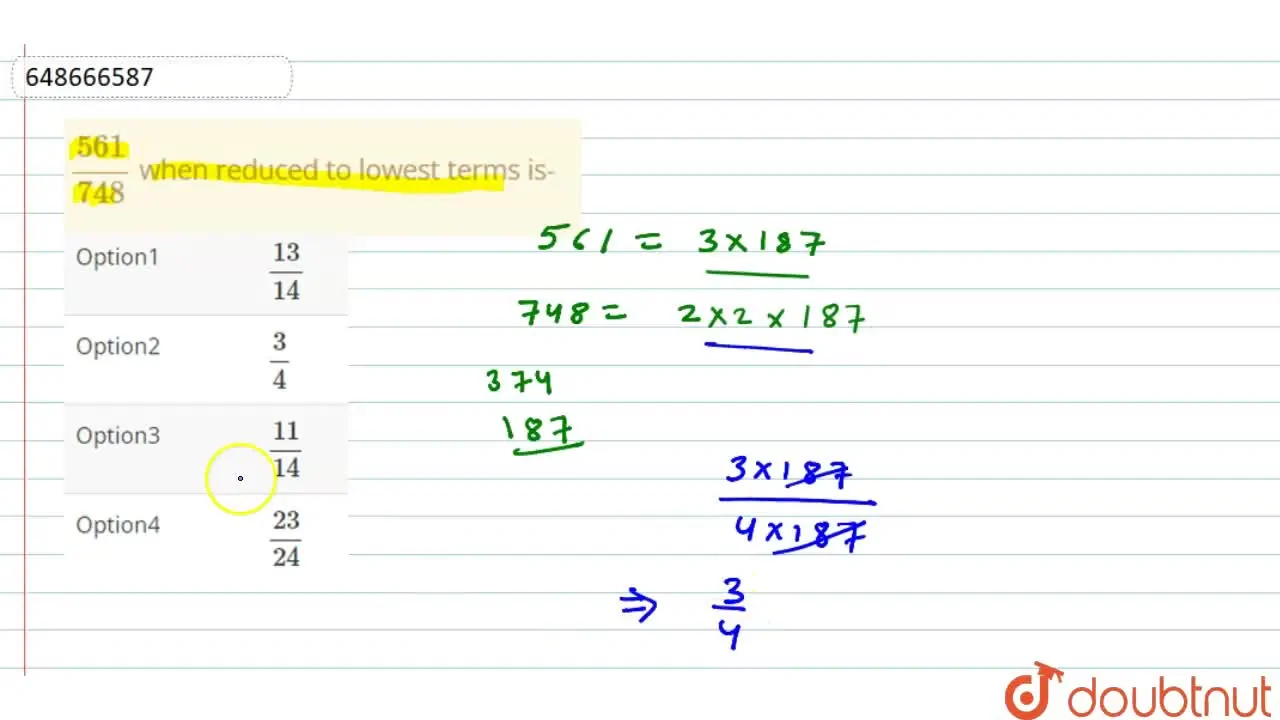 648666587
561
748
when reduced to lowest terms is-
Option1
13
14
Option2
3
4
Option3
11
14
Option4
23
24
561 = 3×187
748 = 2×2×187
374
187
3×187
4×187
⇒ 3
4
doubtnut